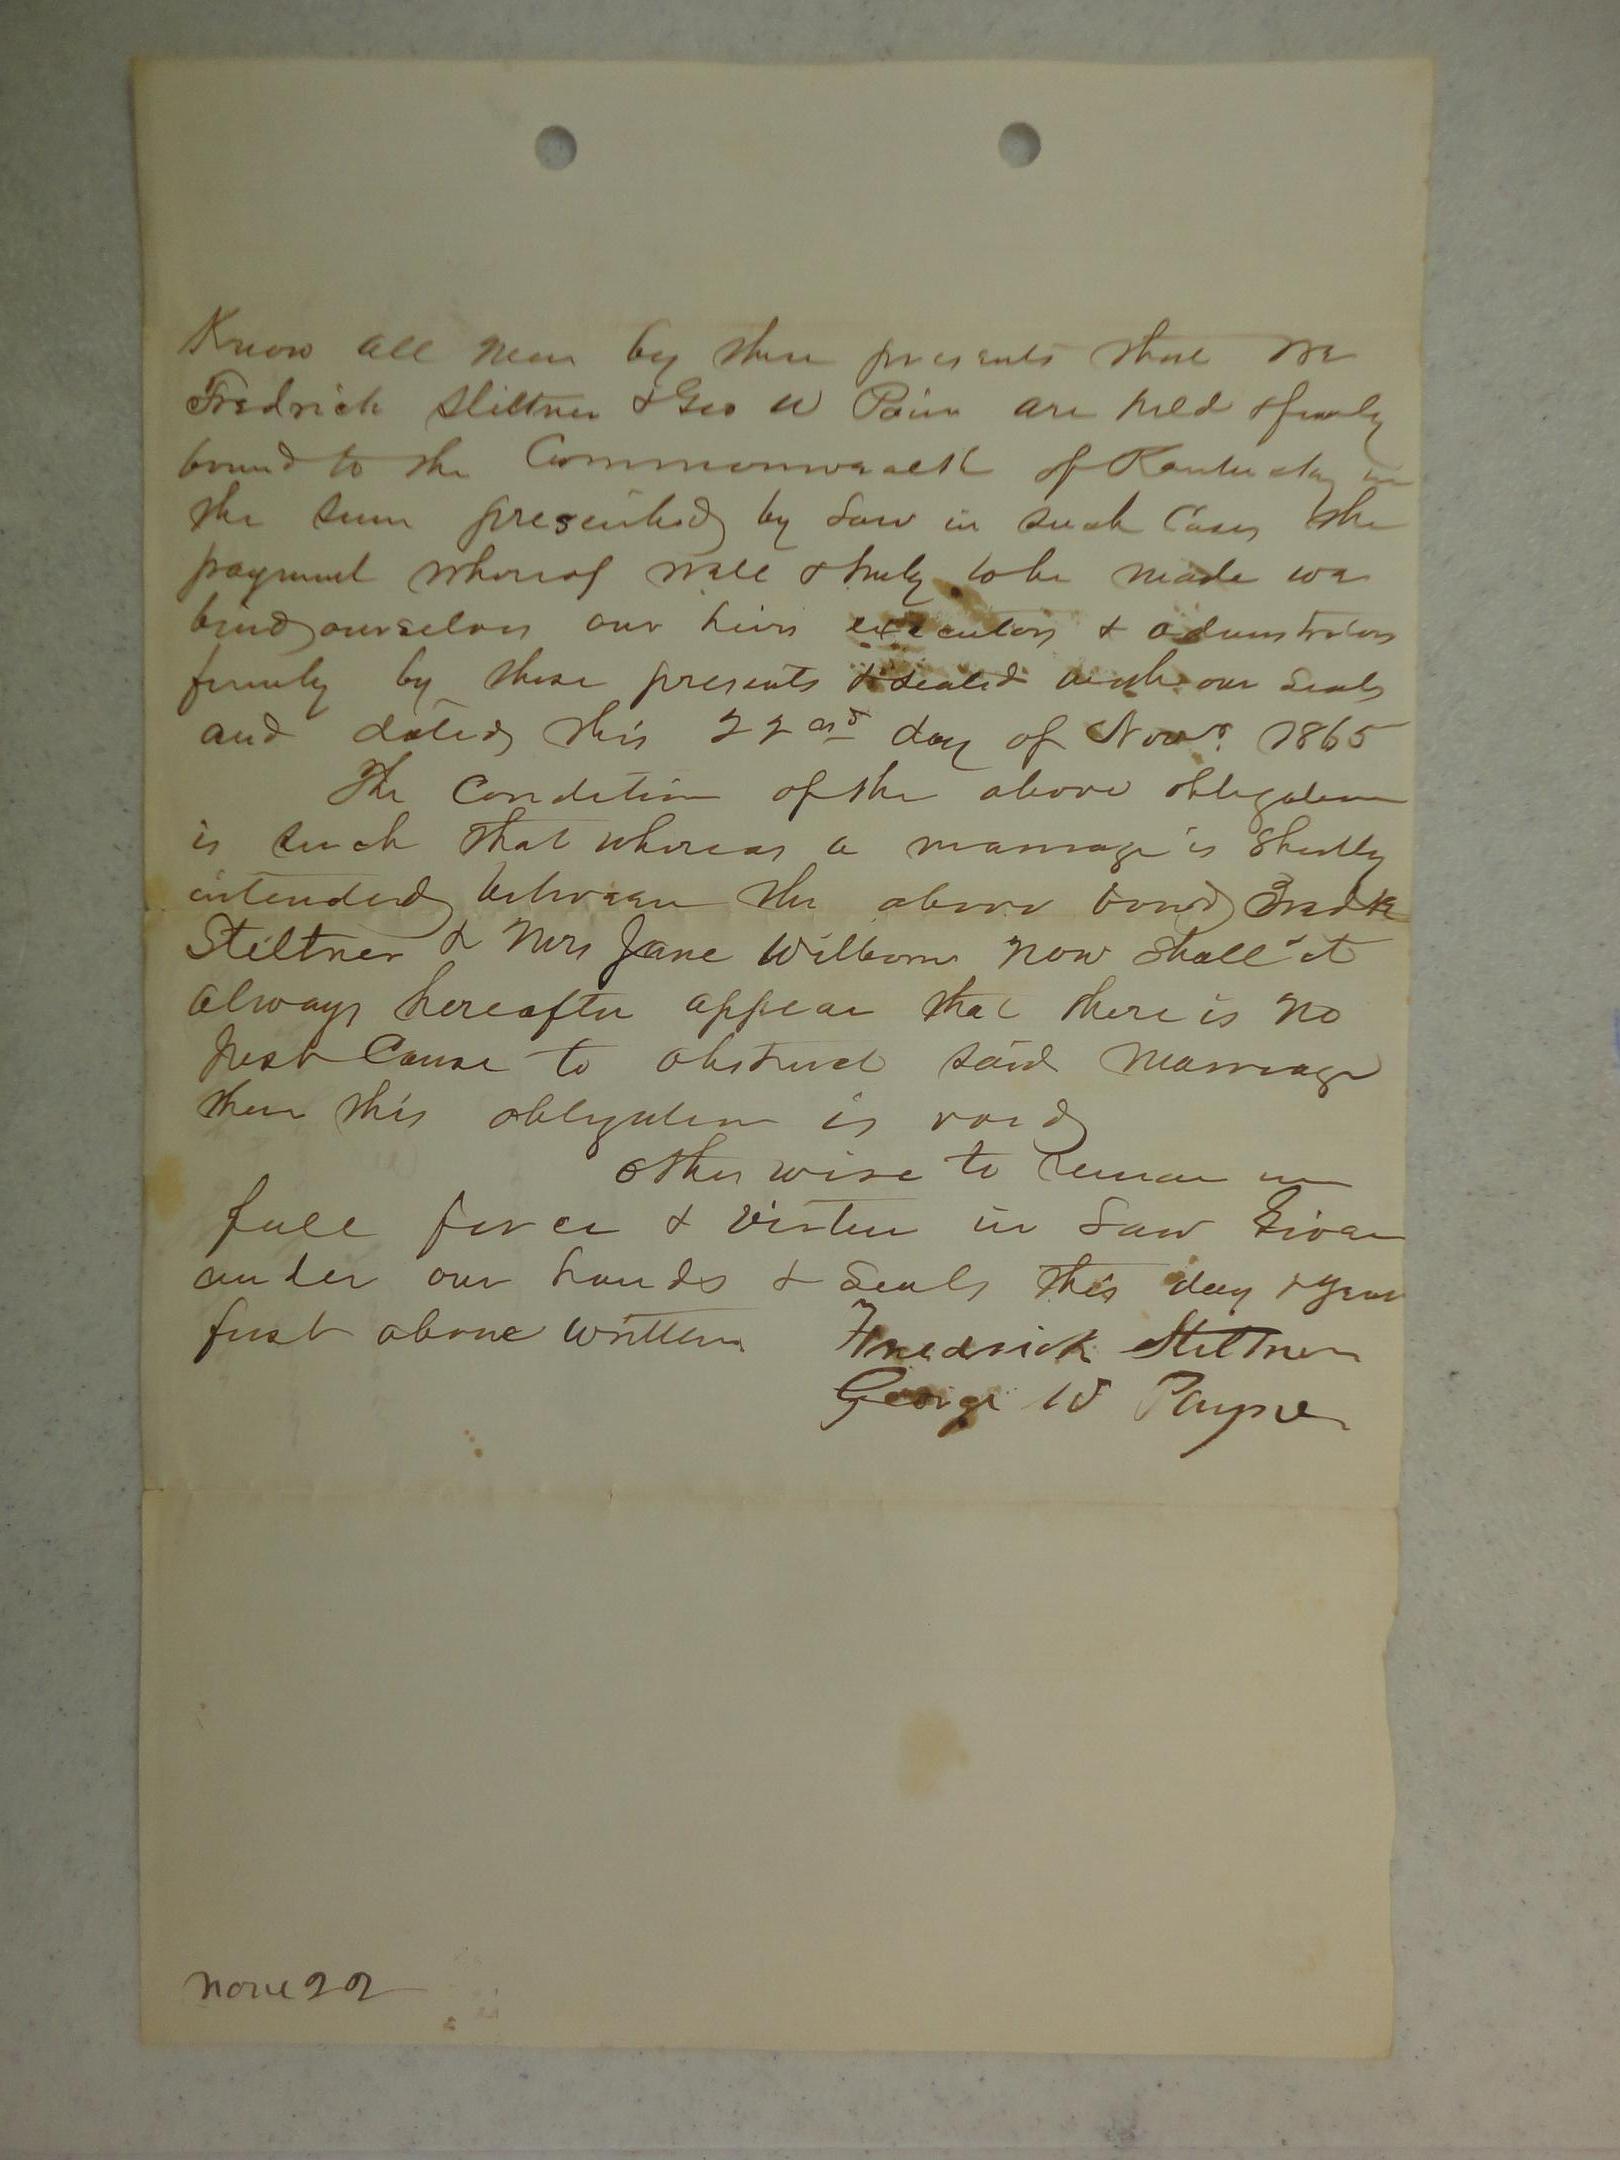 Know all men by these presents that we
Fredrick Stiltner & Geo W Pain are held & firmly
bound to the Commonwealth of Kentucky in
the sum prescribed by Law in such Cases the
payment whereof well & truly to be made we
bind ourselves our heirs executors & adminstrators
firmly by these presents & sealed with our seals
and dated this 22nd day of Novr 1865
The Condition of the above obligation
is such that whereas a marriage is Shortly
intended between the above bond Fredk
Stiltner & Mrs Jane Wilborn now shall it
always hereafter appear that there is no
just Cause to obstruct said marriage
then this obligation is void
otherwise to remain in
full force & virtue in Law Given
under our hands & Seals this day & year
first above written Fredrick Stiltner
George W Payne
nove 22